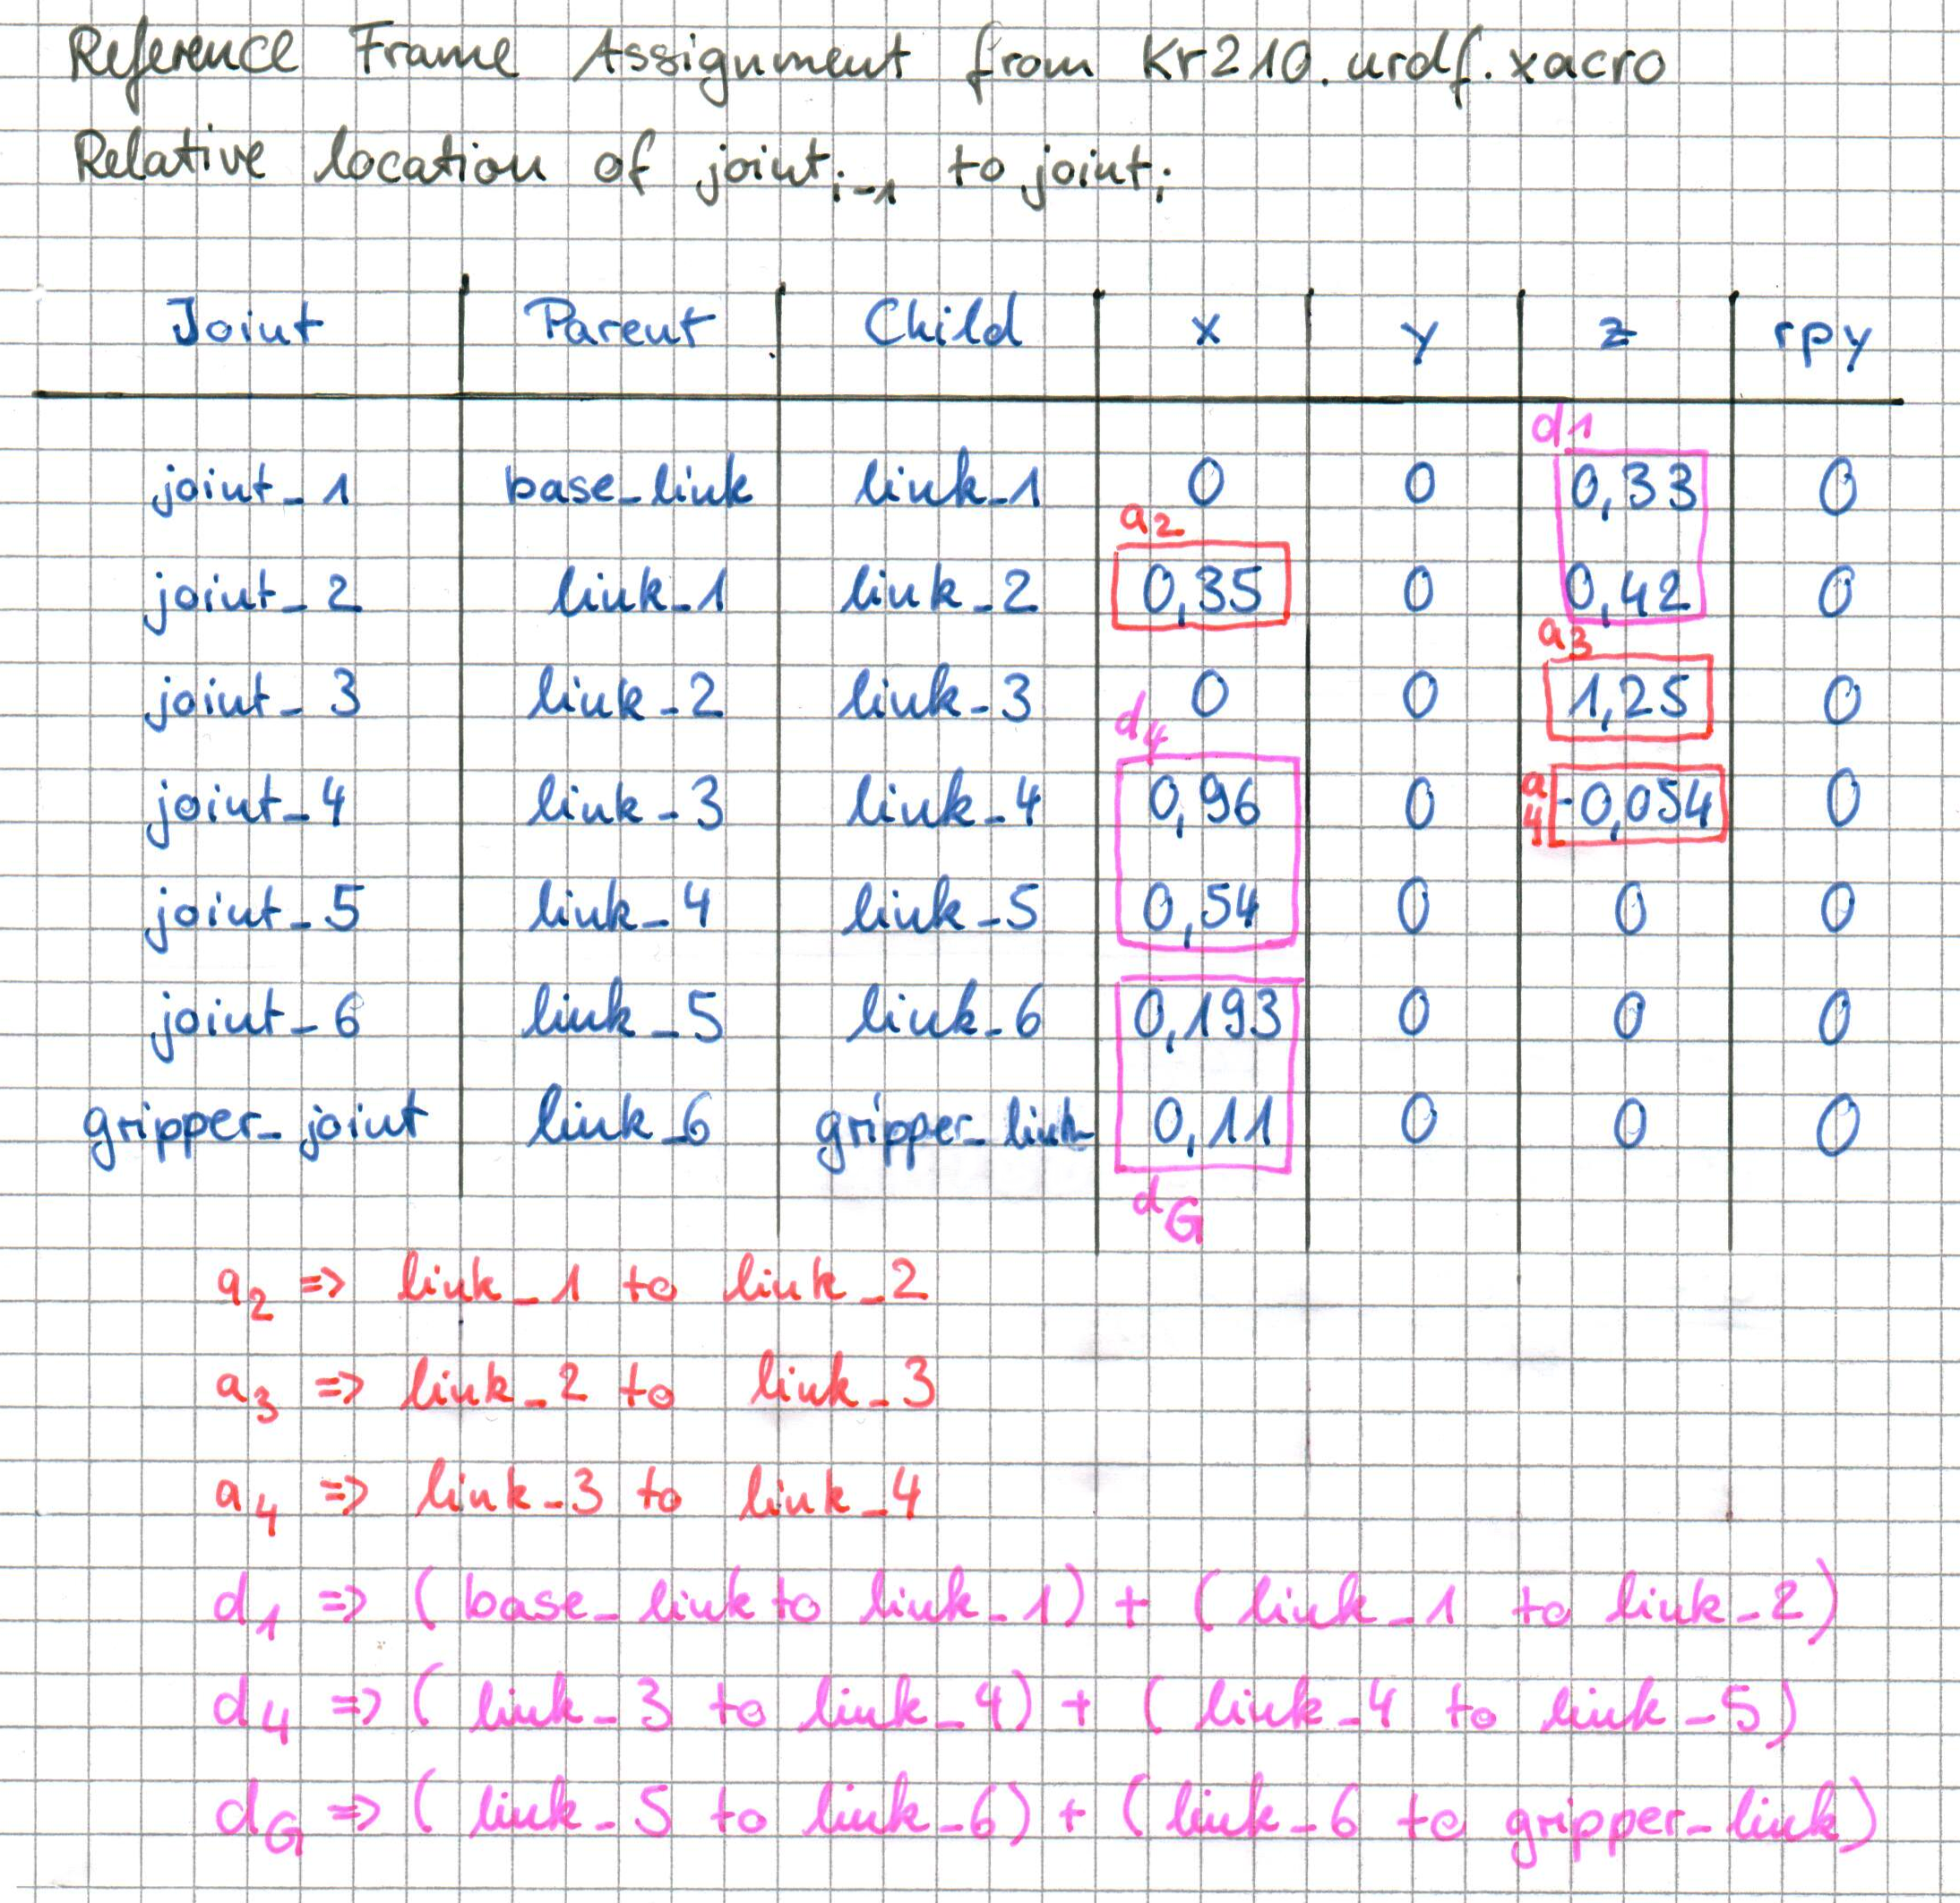 Reference Frame Assignment from Kr210.urdf.xacro
Relative location of joint i-1 to joint i
Joint Parent Child x y z rpy
d1
joint_1 base_link link_1 0 0 0,33 0
a2
joint_2 link_1 link_2 0,35 0 0,42 0
a3
joint_3 link_2 link_3 0 0 1,25 0
d4
joint_4 link_3 link_4 0,96 0 a4 -0,054 0
joint_5 link_4 link_5 0,54 0 0 0
joint_6 link_5 link_6 0,193 0 0 0
gripper_joint link_6 gripper_link 0,11 0 0 0
dG
a2 => link_1 to link_2
a3 => link_2 to link_3
a4 => link_3 to link_4
d1 => (base_link to link_1) + (link_1 to link_2)
d4 => (link_3 to link_4) + (link_4 to link_5)
dG => (link_5 to link_6) + (link_6 to gripper_link)